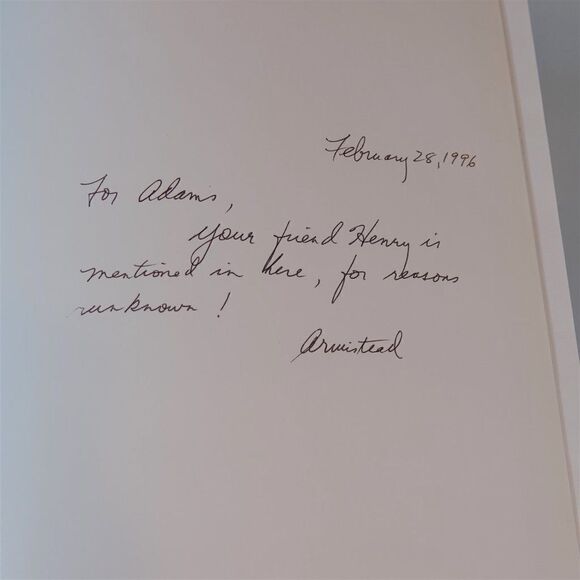 February 28, 1996
For Adams,
your friend Henry is
mentioned in here, for reasons
unknown!
Armistead